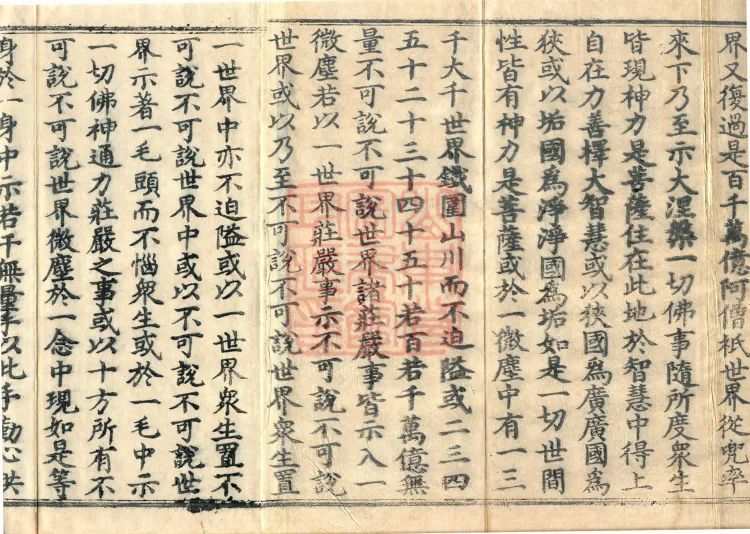 界又復過是百千萬億阿僧祇世界從兜率
來下乃至示大涅槃一切佛事隨所度衆生
皆現神力是菩薩住在此地於智慧中得上
自在力善擇大智慧或以狹國爲廣廣國爲
狹或以垢國爲淨淨國爲垢如是一切世間
性皆有神力是菩薩或於一微塵中有一三
千大千世界鐵圍山川而不迫隘或二三四
五十二十三十四十五十若百若千萬億無
量不可說不可說世界諸莊嚴事皆示入一
微塵若以一世界莊嚴事示不可說不可說
世界或以乃至不可說不可說世界衆生置
一世界中亦不迫隘或以一世界衆生置不
可說不可說世界中或以不可說不可說世
界示著一毛頭而不惱衆生或於一毛中示
一切佛神通力莊嚴之事或以十方所有不
可說不可說世界微塵於一念中現如是等
身於一身中示若干無量手以此手勸心供